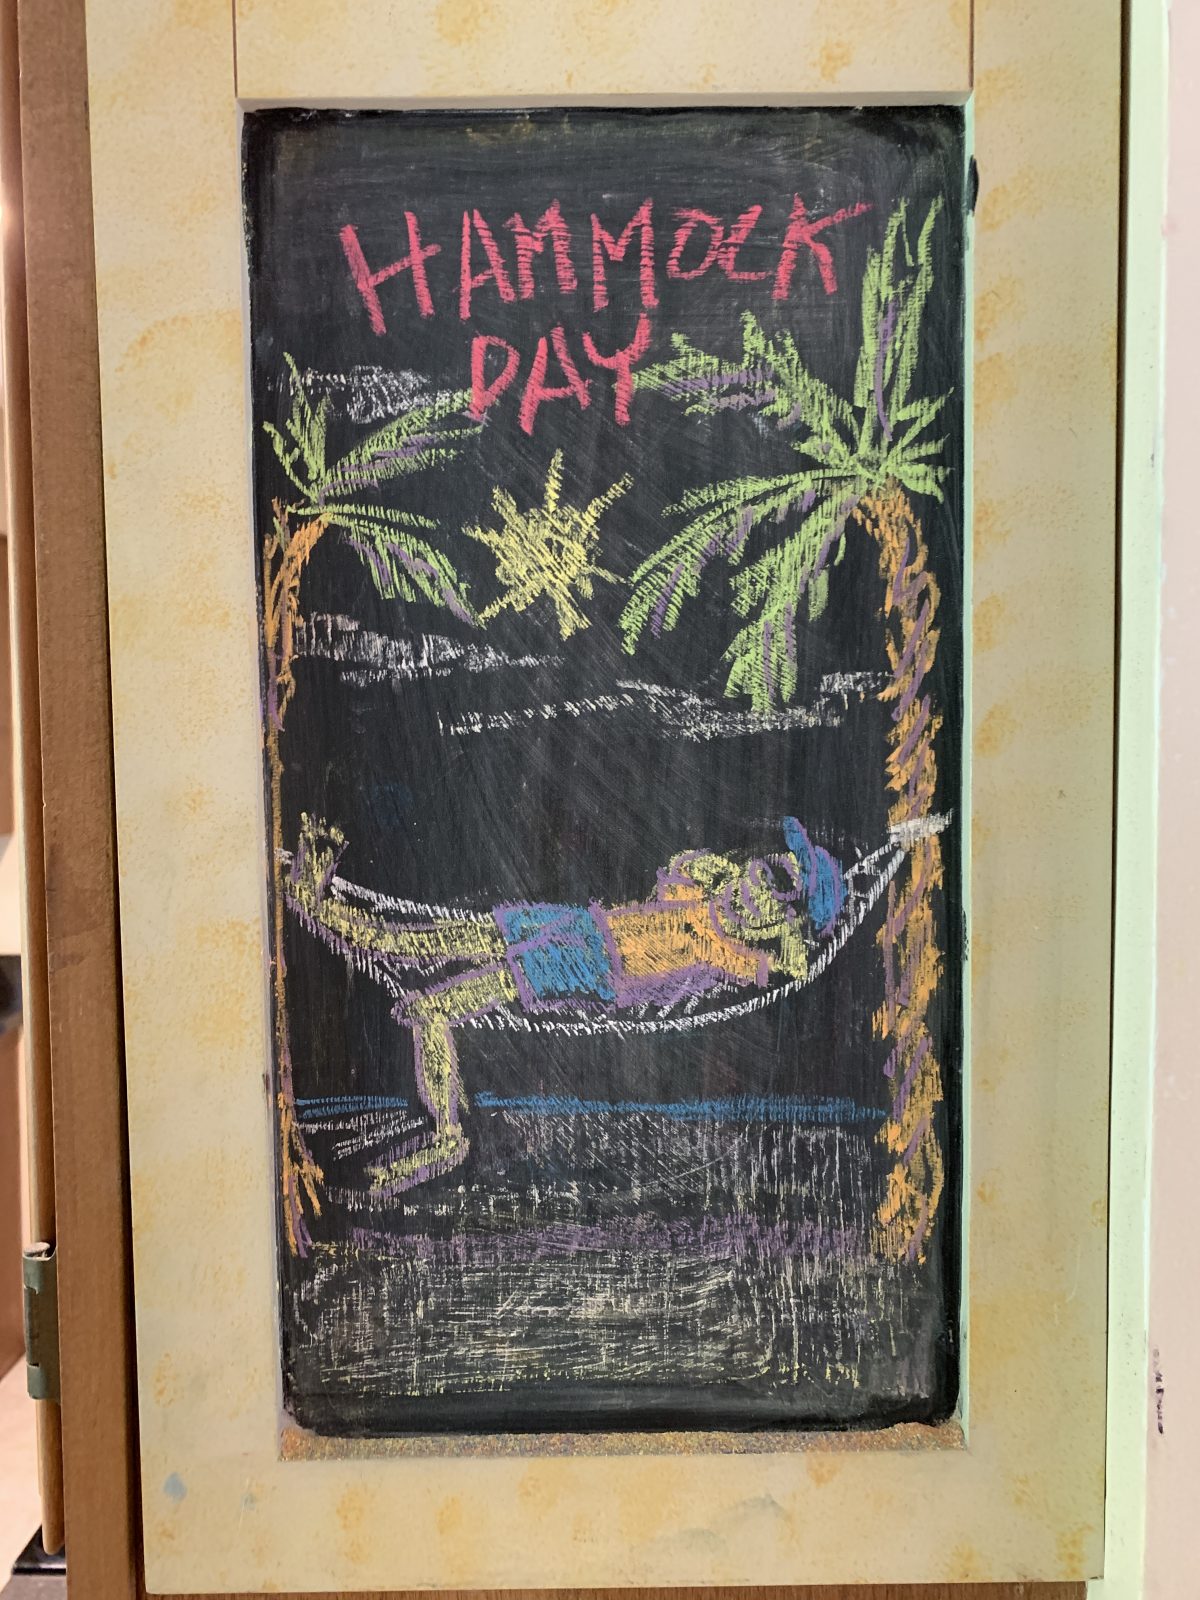 HAMMOCK
DAY